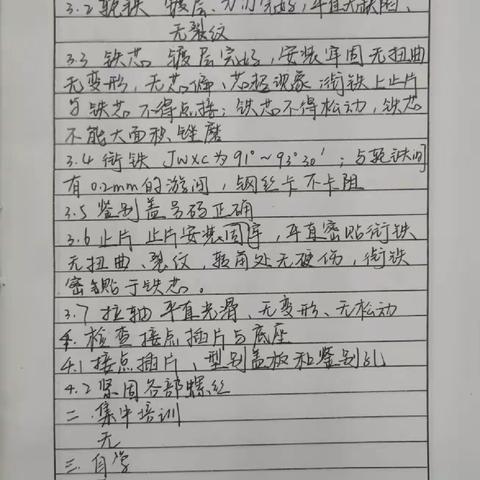 3.2 轭铁 镀层
无裂纹
3.3 铁芯 镀层完好，安装牢固无扭曲
无变形，无芯偏、芯极现象 衔铁上止片
与铁芯不得点接；铁芯不得松动，铁芯
不能大面积锉磨
3.4 衔铁 JWXC为91°~93°30′；与轭铁间
有0.2mm的游间，钢丝卡不卡阻
3.5 鉴别盖号码正确
3.6 止片 止片安装同序，平直密贴衔铁
无扭曲、裂纹，鞍角处无破伤，衔铁
密贴于铁芯。
3.7 拉轴 平直光滑、无变形、无松动
4. 检查接点插片与底座
4.1 接点插片，型别盖板和鉴别孔
4.2 紧固各部螺丝
二 集中培训
无
三 自学